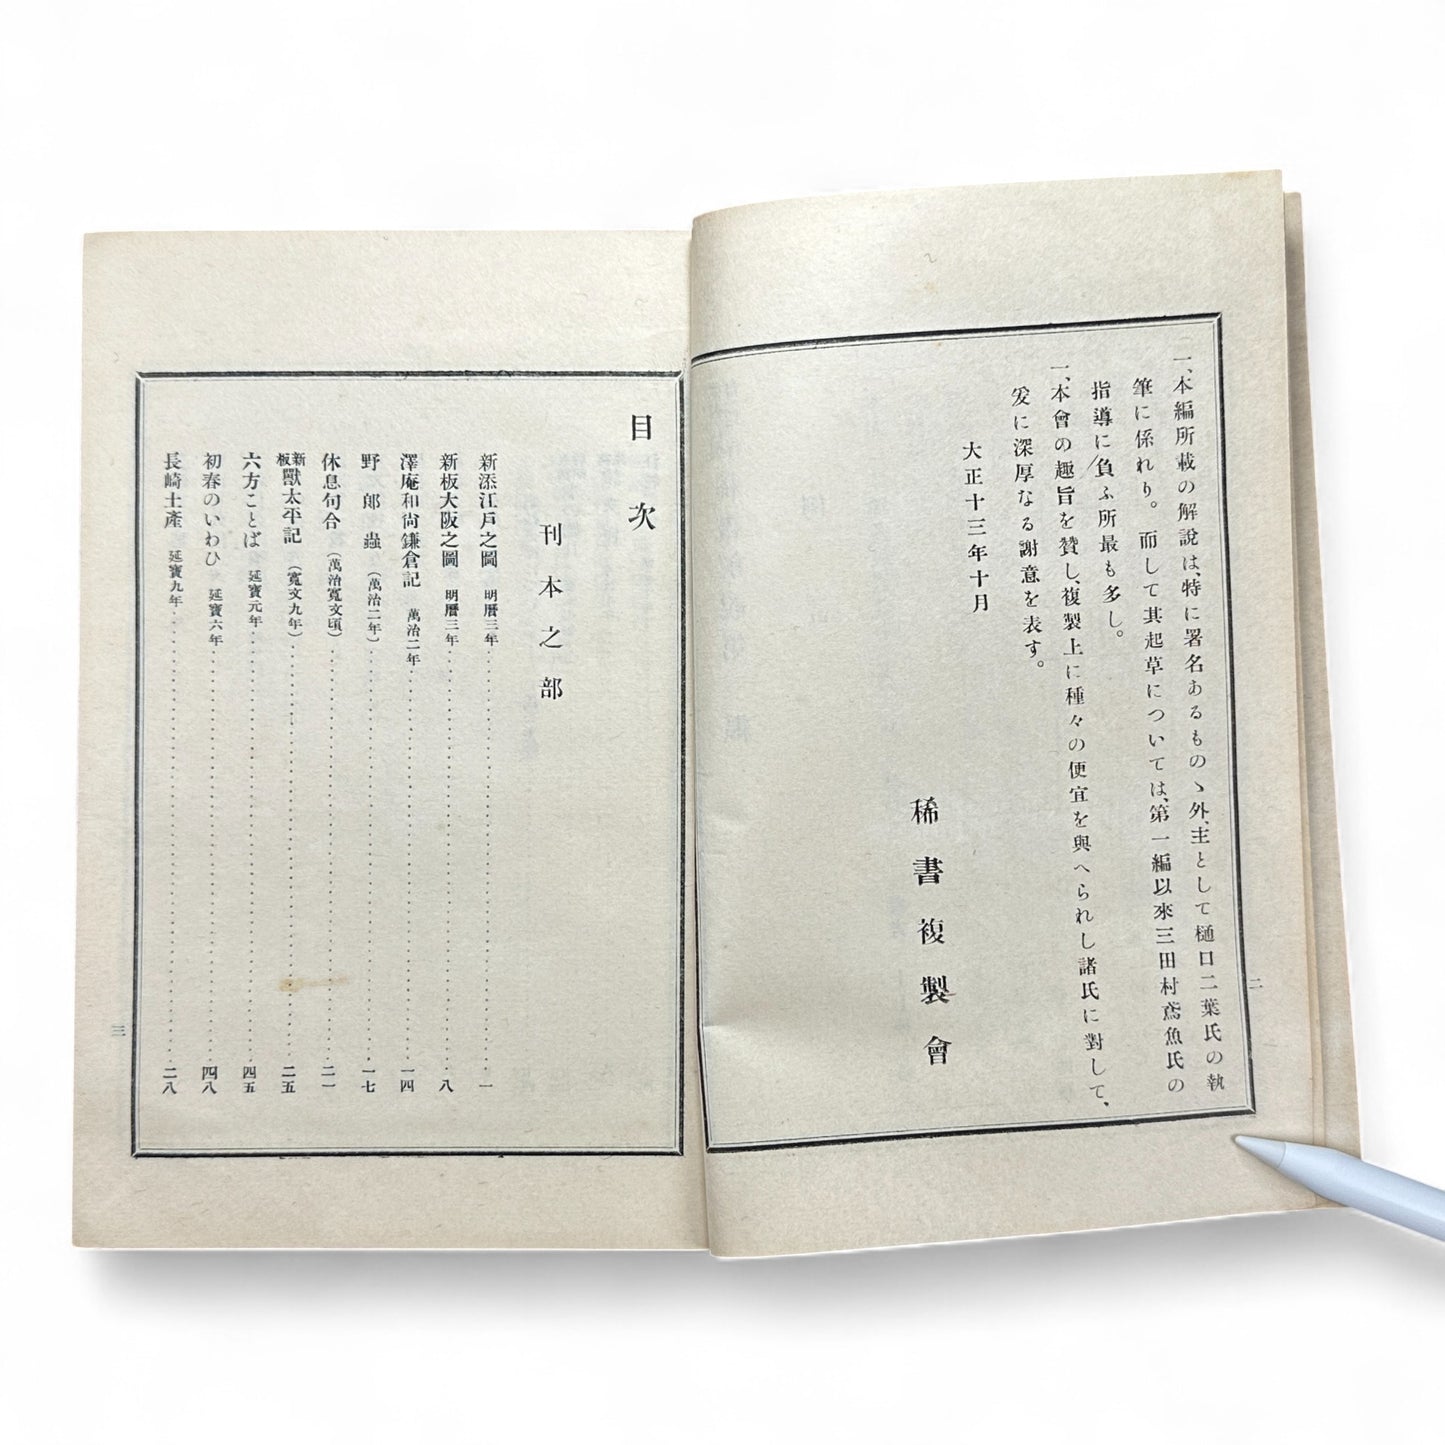 一、本編所載の解說は、特に署名あるものゝ外、主として樋口二葉氏の執
筆に係れり。而して其起草については、第一編以來三田村鳶魚氏の
指導に負ふ所最も多し。
一、本會の趣旨を賛し、複製上に種々の便宜を與へられし諸氏に對して、
爰に深厚なる謝意を表す。
大正十三年十月
稀書複製會
二
目次
刊本之部
新添江戶之圖 明曆三年 一
新板大阪之圖 明曆三年 八
澤庵和尙鎌倉記 萬治二年 一四
野郞蟲 (萬治二年) 一七
休息句合 (萬治寬文頃) 二一
新板獸太平記 (寬文九年) 二五
六方ことば 延寶元年 四五
初春のいわひ 延寶六年 四八
長崎土產 延寶九年 二八
三